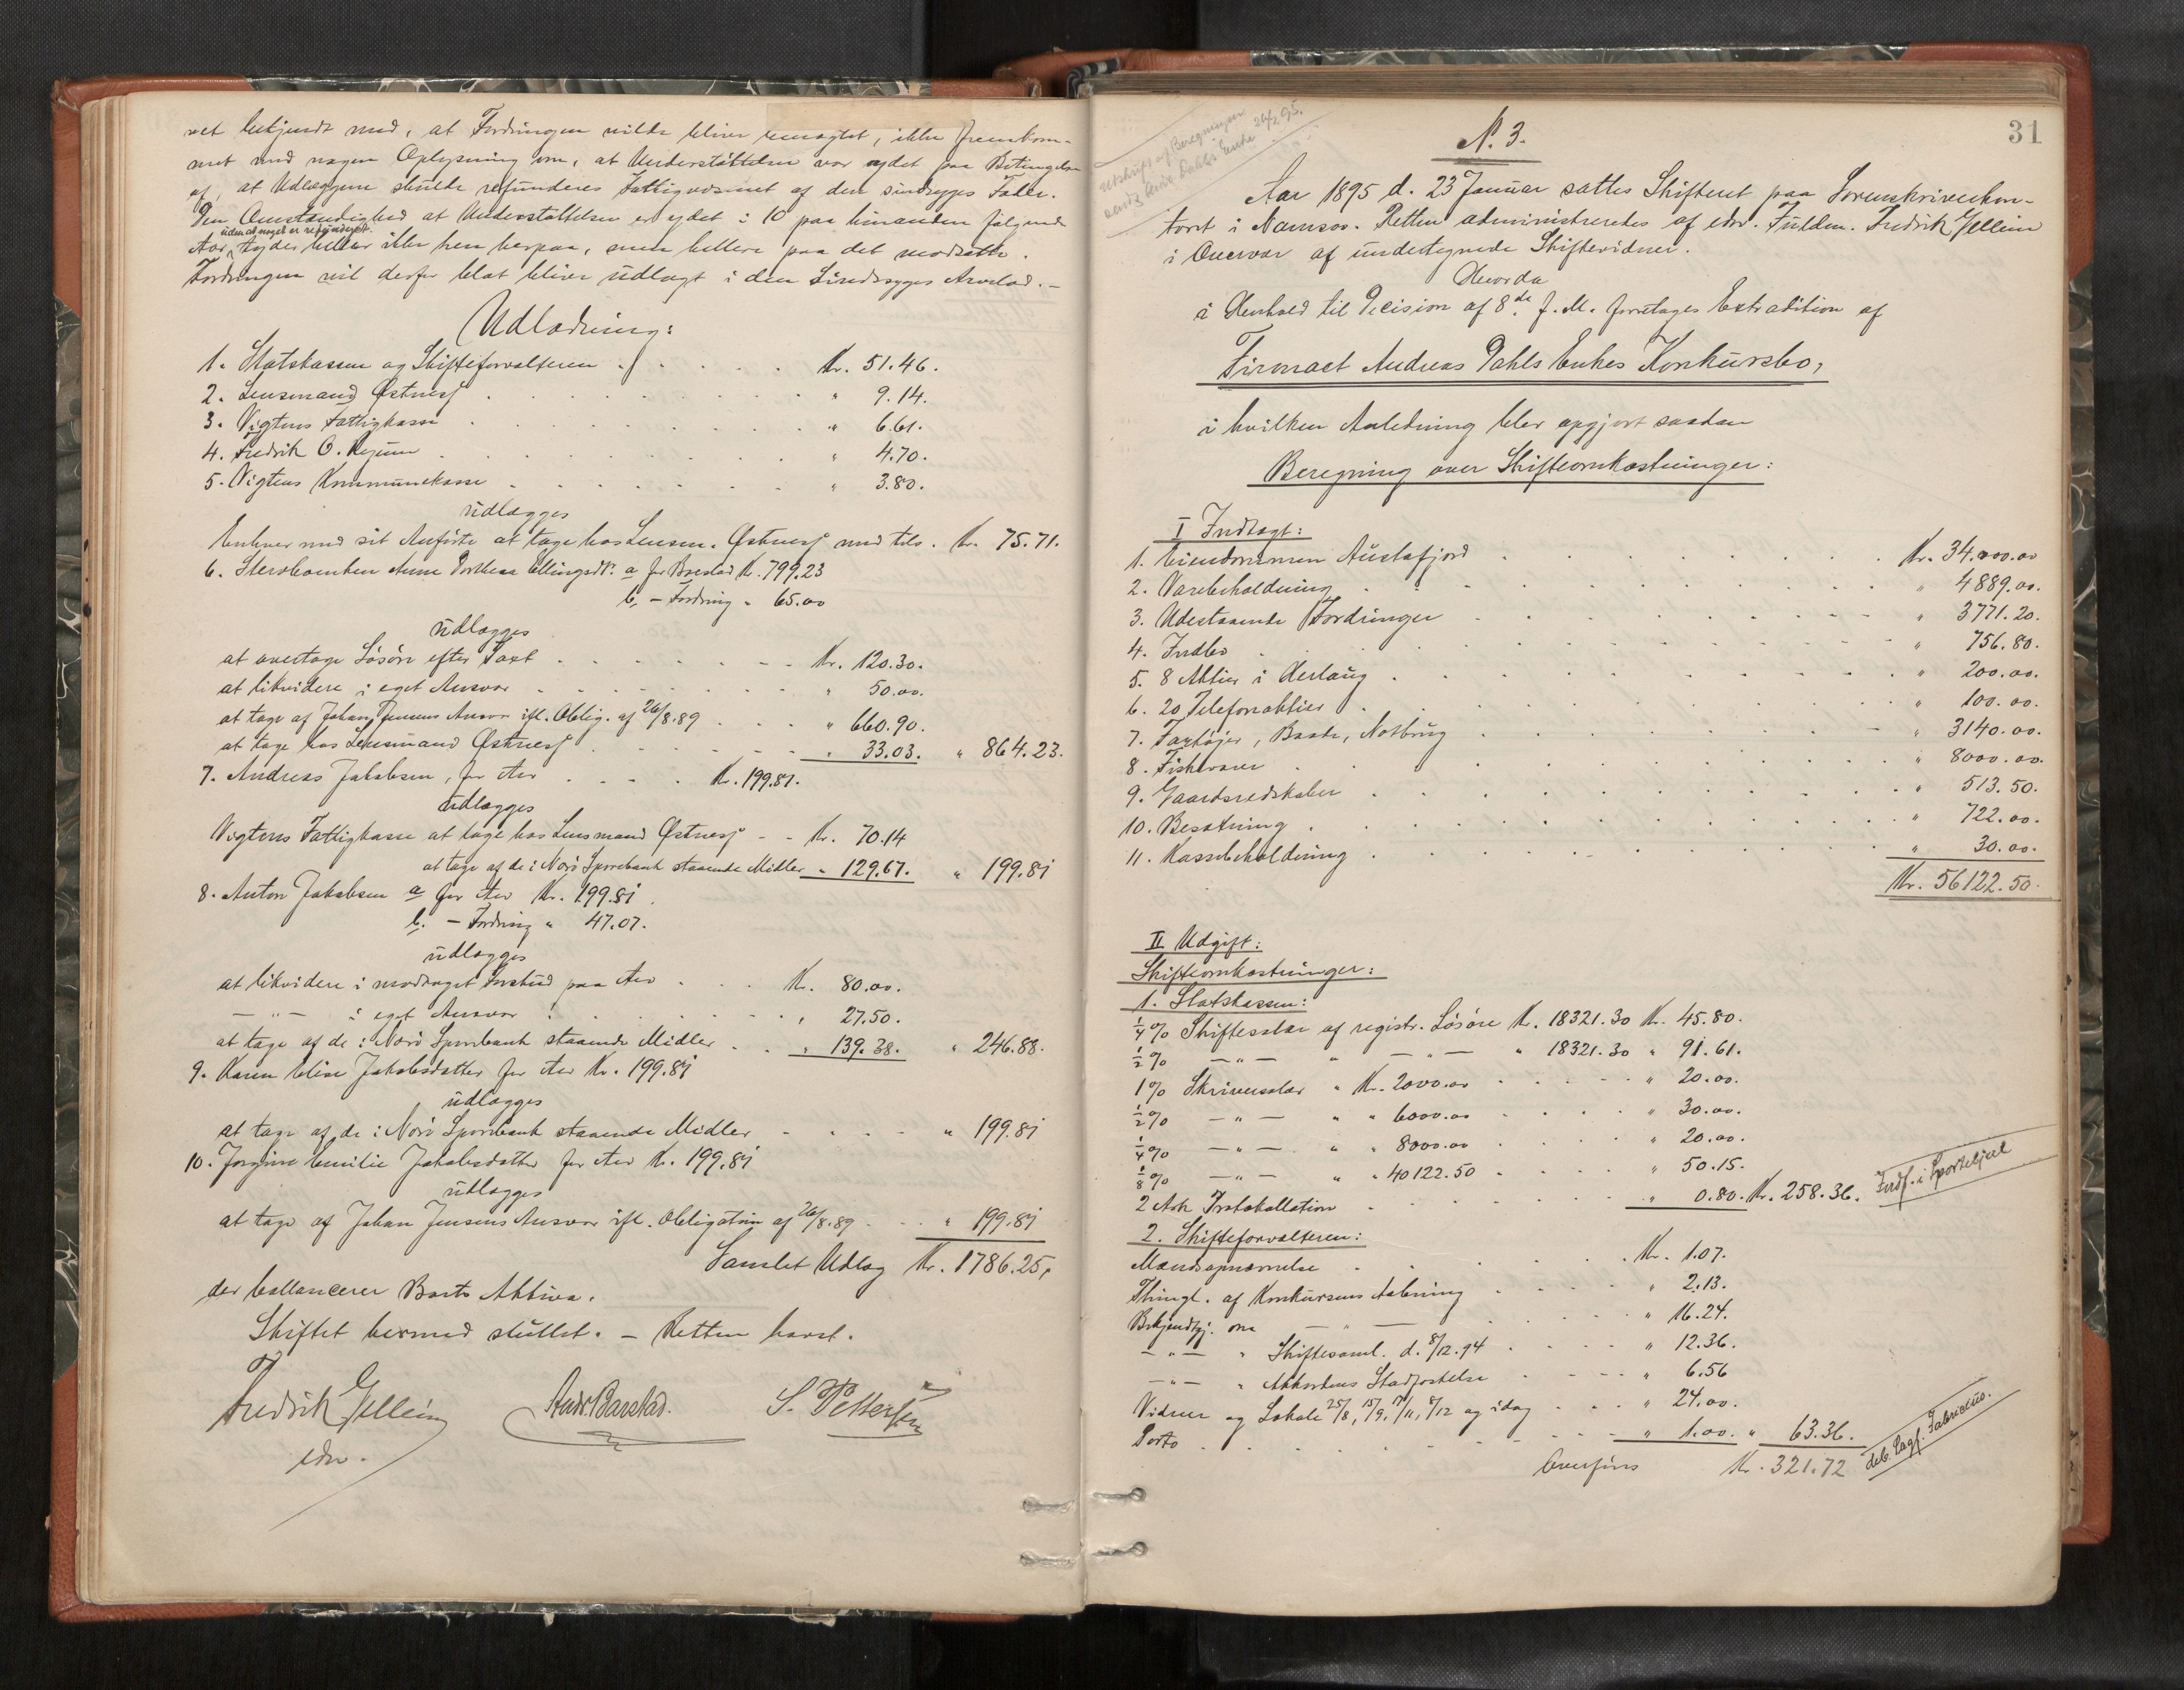 vet bekjendt med, at Fordringen vilde bliver benægtet, ikke fremkom-
met med nogen Oplysning om, at Understøttelsen var ydet paa Betingelse
af, at Udlæggene skulde refunderes Fattigvæsenet af den sindssyges Fader.
Den Omstændighed at Understøttelsen er ydet i 10 paa hinanden følgende
uden at noget er refunderet
Aar, tyder heller ikke hen herpaa, men hellere paa det modsatte.
Fordringen vil derfor blot bliver udlagt i den Sindssyges Arvelod. –
Udlodning:
1. Statskassen og Skifteforvalteren . . . . . Kr. 51.46.
2. Lensmand Østnesf . . . . . " 9.14.
3. Vigtens Fattigkasse . . . . . " 6.61.
4. Fredrik O. Regum . . . . . " 4.70.
5. Vigtens Kommunekasse . . . . . " 3.80.
udlægges
Enhver med sit Anførte at tage hos Lensm. Østnesf med tils. Kr. 75.71.
6. Sterbboenken Anne Dorthea Ellingsdtr. a for Boeslod Kr. 799.23
b, – Fordring " 65.00
udlægges
at overtage Løsøre efter Taxt . . . . . Kr. 120.30.
at likvidere i eget Ansvar . . . . . " 50.00.
at tage af Johan Jensens Ansvar ifl. Oblig. af 26/8.89 . . . " 660.90.
at tage hos Lensmand Østnesf . . . . . " 33.03. " 864.23.
7. Andreas Jakobsen, for Arv . . . . Kr. 199.81.
udlægges
Vigtens Fattigkasse at tage hos Lensmand Østnesf - - Kr. 70.14
at tage af de i Nærö Sparebank staaende Midler " 129.67. " 199.81
8. Anton Jakobsen a for Arv Kr. 199.81.
b. – Fordring " 47.07.
udlægges
at likvidere i modtaget Forskud paa Arv . . . Kr. 80.00.
– " – i eget Ansvar . . . . . " 27.50.
at tage af de i Nærö Sparebank staaende Midler . . " 139.38. " 246.88.
9. Karen Elise Jakobsdatter for Arv Kr. 199.81
udlægges
at tage af de i Nærö Sparebank staaende Midler - . . - " 199.81
10. Jørgine Emilie Jakobsdatter for Arv Kr. 199.81
udlægges
at tage af Johan Jensens Ansvar ifl. Obligation af 26/8.89 - . . " 199.81
Samlet Udlæg Kr. 1786.25,
der ballancerer Boets Aktiva.
Skiftet hermed sluttet. – Retten hævet.
Fredrik Gellein Andr. Barstad. S. Pettersen
edv.
31
Utskrift af Beregningen
Andr. Dahls Enke 24/1 95.
N. 3.
Aar 1895 d. 23 Januar sattes Skifteret paa Sorenskriverkon-
toret i Namsos. Retten administreredes af edv. Fuldm. Fredrik Gellein
i Overvær af undertegnede Skiftevidner.
Hvorda
i Henhold til Decision af 8de f. M. foretages Extradition af
Firmaet Andreas Dahls Enkes Konkursbo,
i hvilken Anledning blev opgjort saadan
Beregning over Skifteomkostninger:
I Indtægt:
1. Eiendommen Austafjord . . . . . Kr. 34.000.00
2. Varebeholdning . . . . . " 4889.00.
3. Udestaaende Fordringer . . . . . " 3771.20.
4. Indbo . . . . . " 756.80.
5. 8 Aktier i Herlaug . . . . . " 200.00.
6. 20 Telefonaktier . . . . . " 100.00.
7. Fartøjer, Baate, Notbrug . . . . . " 3140.00.
8. Fiskevarer . . . . . " 8000.00.
9. Gaardsredskaber . . . . . " 513.50.
10. Besætning . . . . . " 722.00.
11. Kassebeholdning . . . . . " 30.00.
Kr. 56122.50.
II Udgift:
Skifteomkostninger:
1. Statskassen:
1/4 % Skiftesalær af registr. Løsøre Kr. 18321.30 Kr. 45.80.
1/2 % – " – " – " – " 18321.30 " 91.61.
1 % Skriversalær " Kr. 2000.00 . . . . " 20.00.
1/2 % – " – " " 6000.00 . . . . " 30.00.
1/4 % – " – " " 8000.00 . . . . " 20.00.
1/8 % – " – " " 40122.50 . . . . " 50.15.
2 Ark Protokollation . . . . . " 0.80. Kr. 258.36. Indf. i Sporteljul
2. Skifteforvalteren:
Mændsopnævnelse . . . . . Kr. 1.07.
Thingl. af Konkursens Aabning . . . . " 2.13.
Bekjendtgj. om – " – . . . . " 16.24.
– " – " Skiftesaml. d. 8/12.94 . . . . " 12.36.
– " – " Akkordens Stadfæstelse . . . . " 6.56
Vidner og Lokale 25/8, 15/9, 17/11, 8/12 og idag . . . " 24.00.
Porto . . . . . " 1.00. " 63.36.
Overføres Kr. 321.72 deb. Sagf. Fabricius.